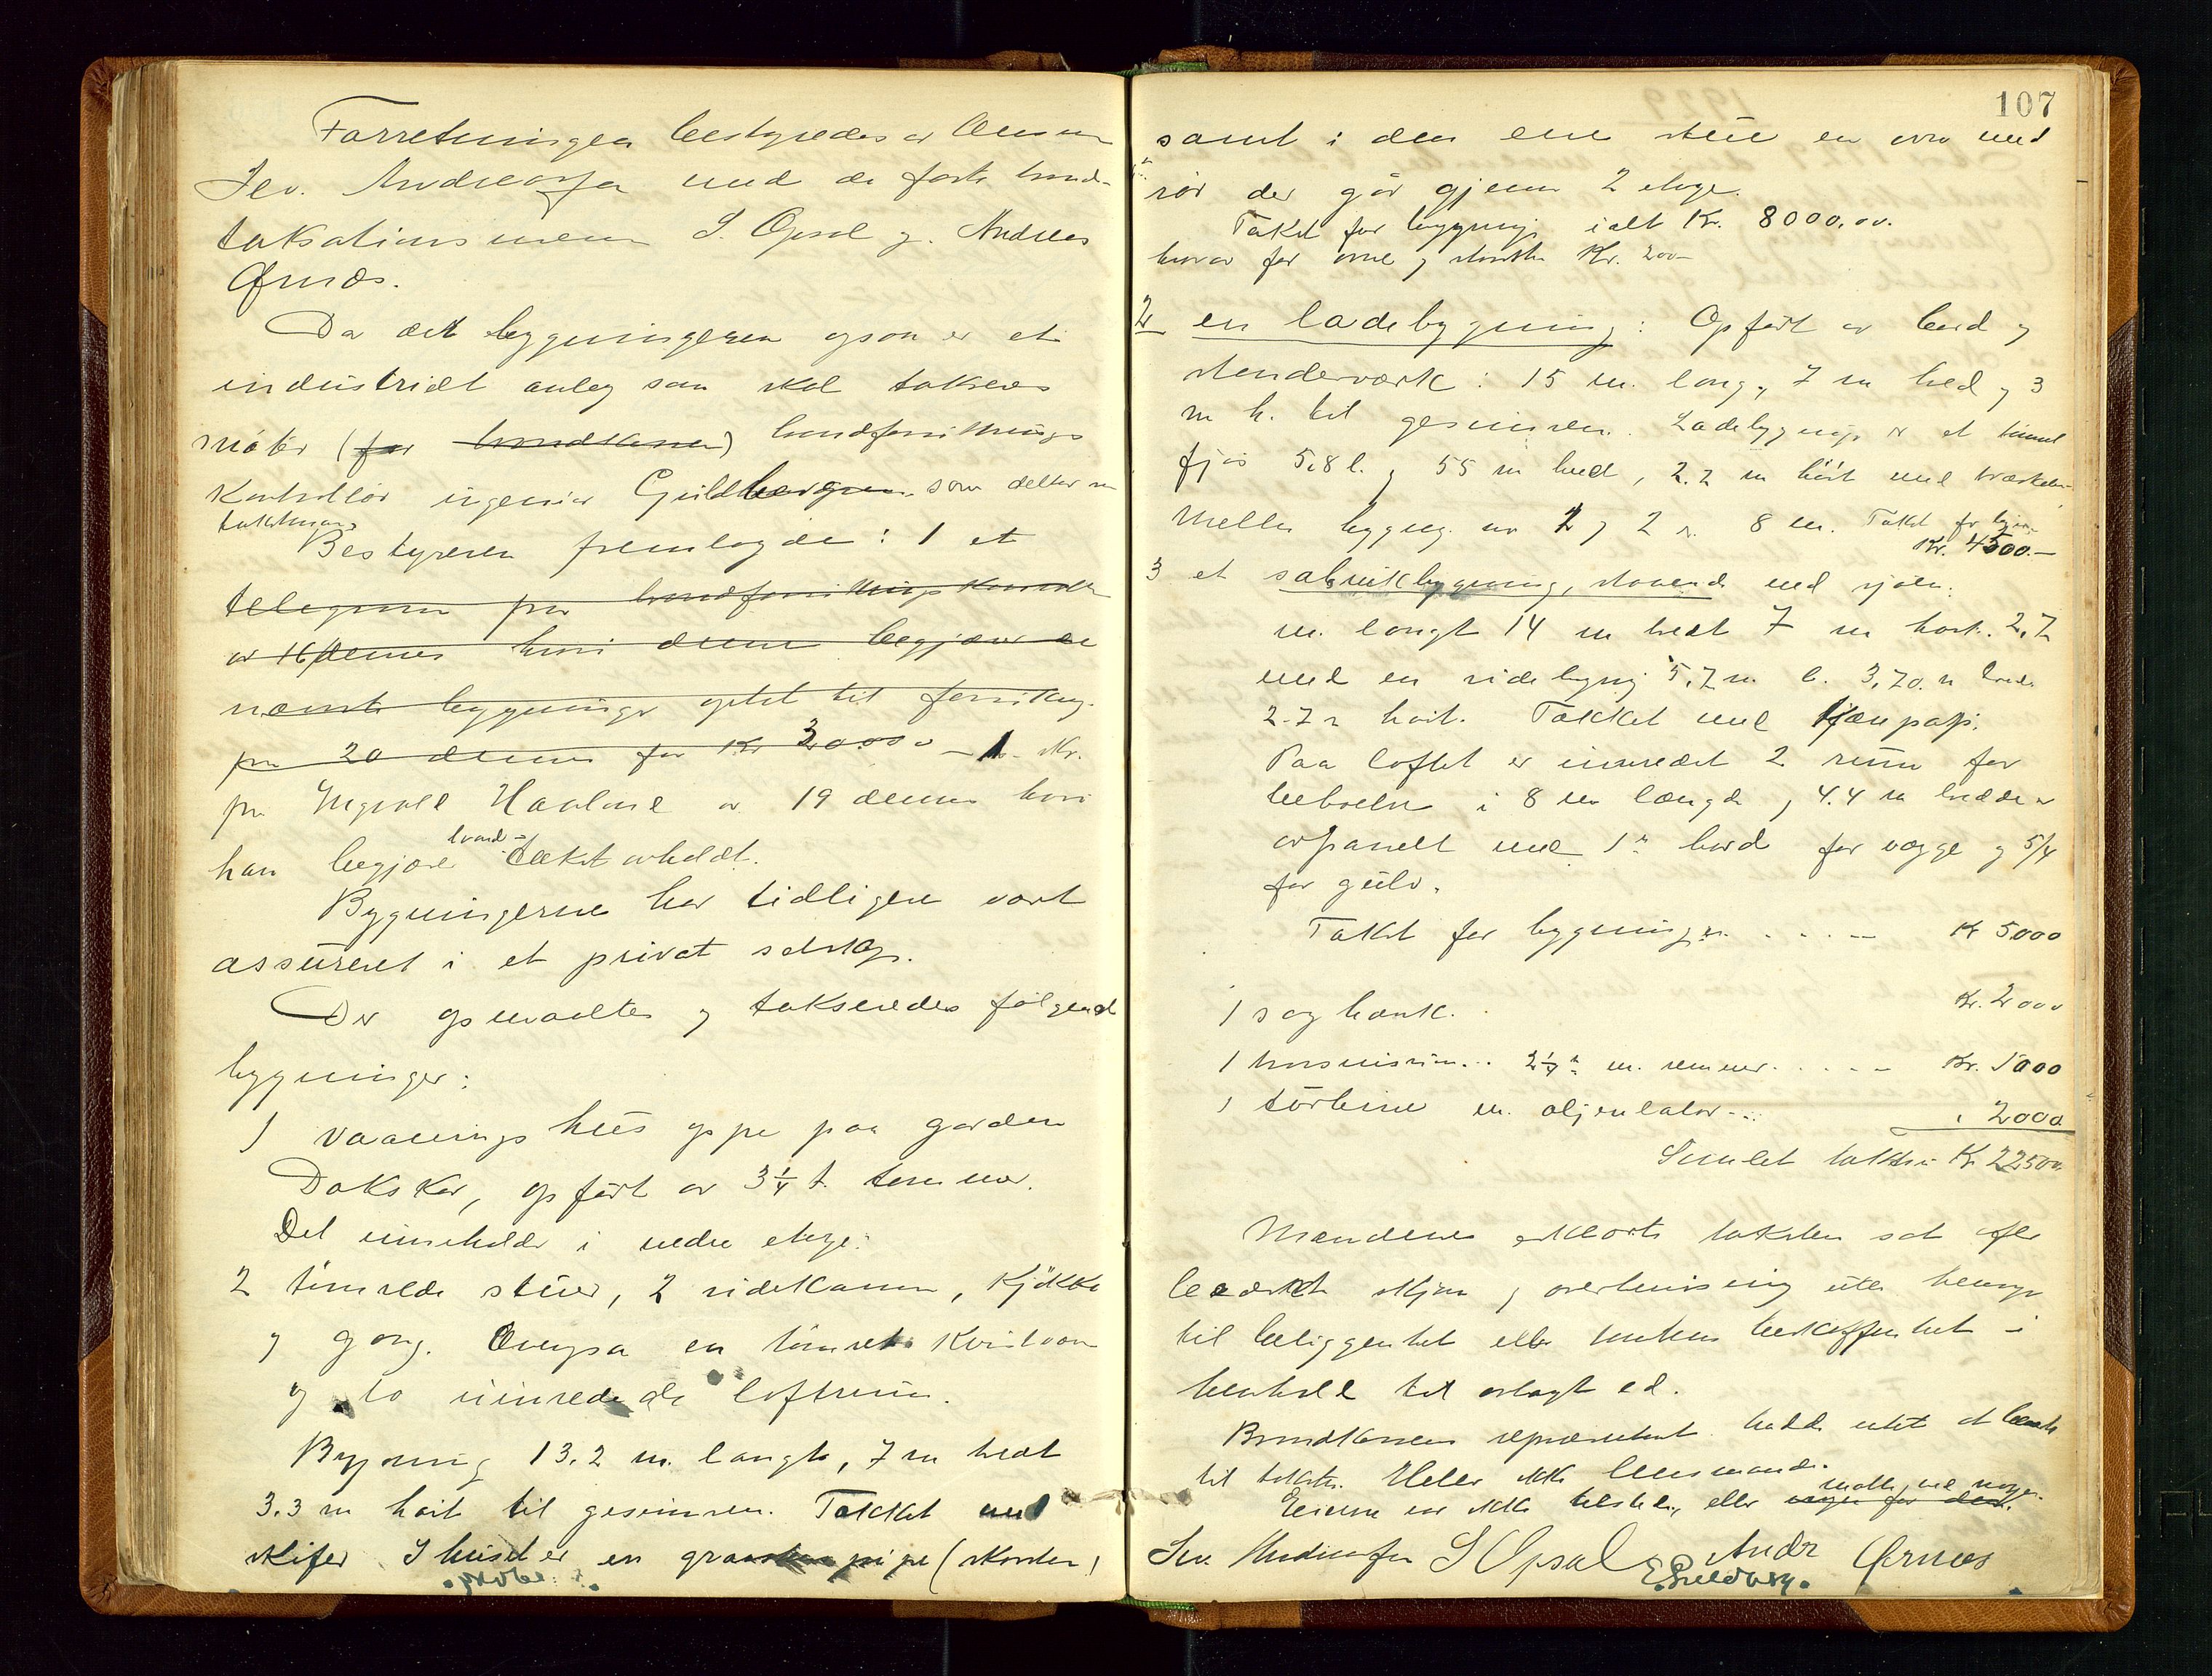 Forretningen bestyredes av lensm
Sev. Andreassen med de faste brand-
taksationsmenn S. Opsal og Andreas
Ørnæs.
Da det bygningerne ogsaa er et
industrielt anleg som skal takseres
møter (for brandkassen) brandforsikrings
Kontrollør ingeniør Guldberg som deltar m
takstman
Bestyreren fremlagde: 1 et
telegram fra brandforsikrings
av 16 dennes hvori denne begjærer de
nævnte bygninger optat til forsikring
fra 20 dennes for Kr 30000 - 1 skr.
fra Ingvald av 19 dennes hvori
han begjærer brand-takst avholdt.
Bygningerne har tidligere vært
assureret i et privat selskap.
Der opmaaltes og takseredes følgende
bygninger:
1 vaaningshus oppe paa garden
opført av 3¼ t. tømmer.
Det inneholder i nedre etage:
2 tømrede stuer, 2 sidekammer, kjøkken
og gang. Ovenpaa en tømret kvist
og to uinredede loftsrum.
Bygning 13.2 m. langt, 7 m bredt
3.3 m høit til gesimsen. Tækket med
skifer. I huset er en pipe (skorsten)
107
samt i den ene stue en ovn med
rør der går gjennem 2 etage.
Takst for bygningen ialt Kr. 8000.00.
herav for ovne og skorsten Kr. 200-
2 en ladebygning: Opført av bord og
stenderværk: 15 m. lang, 7 m bred og 3
m h. til gesimsen. I ladebygningen er et tømret
fjøs 5,8 l. og 55 m bred, 2.2 m høit med
Mellem bygng. nr 1 og 2 er 8 m. Takst for bygn.
Kr. 4500.-
3 et fabrikbygning, staaende ved sjøen.
m. langt 14 m bredt 7 m høit. 2,7
med en sidebygning 5,7 m l. 3,70 m bred
2.7 m høit. Tækket med tjærepap.
Paa loftet er innredet 2 rum for
beboelse i 8 m længde og 4.4 m bredde er
avpanelt med 1" bord for vægge og 5/4
for gulv.
Takst for bygningen . . . . - Kr 5000
1 sagbænk. Kr. 2000
1 m. remmer. . . . . - Kr. 1000
1 turbine m. " 2000
Samlet takst Kr 22500.
Mændene erklærte taksten sat efter
bedste skjøn og overbevisning uten hensyn
til beliggenhet eller tomtens beskaffenhet i
henhold til avlagt ed.
Brandkassens repræsentant hadde intet at bemerke
til taksten. Heller ikke lensmanden.
Eieren var ikke tilstede, eller møtte ved nogen
Sev. Andreassen S Opsal E. Guldberg. Andr Ørnæs